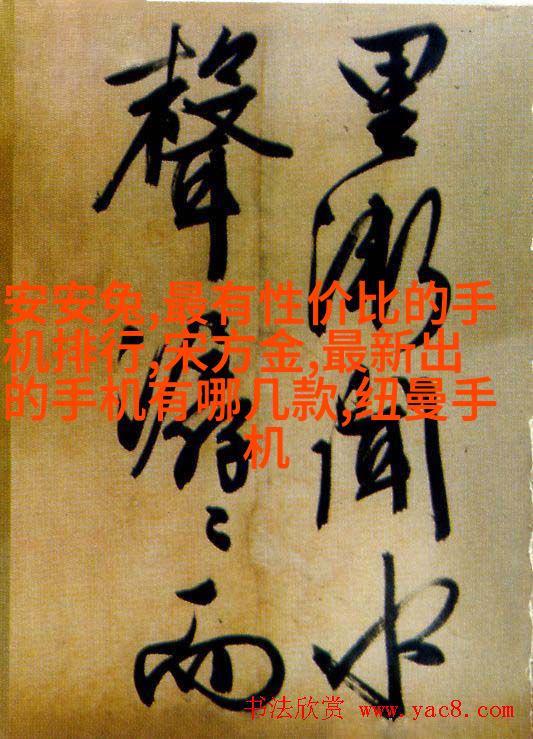 里漸聞水
聲潺〻而
安安兔,最有性价比的手
机排行,宋方金,最新出
的手机有哪几款,纽曼手
机
书法欣赏 www.yac8.com